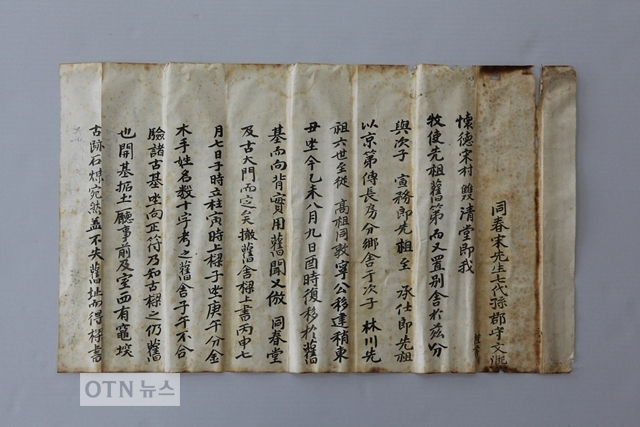 同春宋先生七代孫郡守文
懷德宋村雙清堂即我
牧使先祖舊第而又置別舍於玆分
與次子宣務郎先祖至承仕郎先祖
以京第傳長房分鄉舍于次子林川先
祖六世至從高祖同敦寧公移建稍東
丑坐今乙未八月九日酉時復移於舊
基而向背實用舊聞又倣同春堂
及古大門而定矣撤舊舍樑上書丙申七
月七日子時立柱寅時上樑子坐庚午分金
木手姓名數十字考之舊舍子午不合
驗諸古基坐向正符乃知古樑之仍舊
也開基拓土廳事前及室西有竈埃
古跡石煉宛然盖不失舊址而得樑書
OTN 뉴스